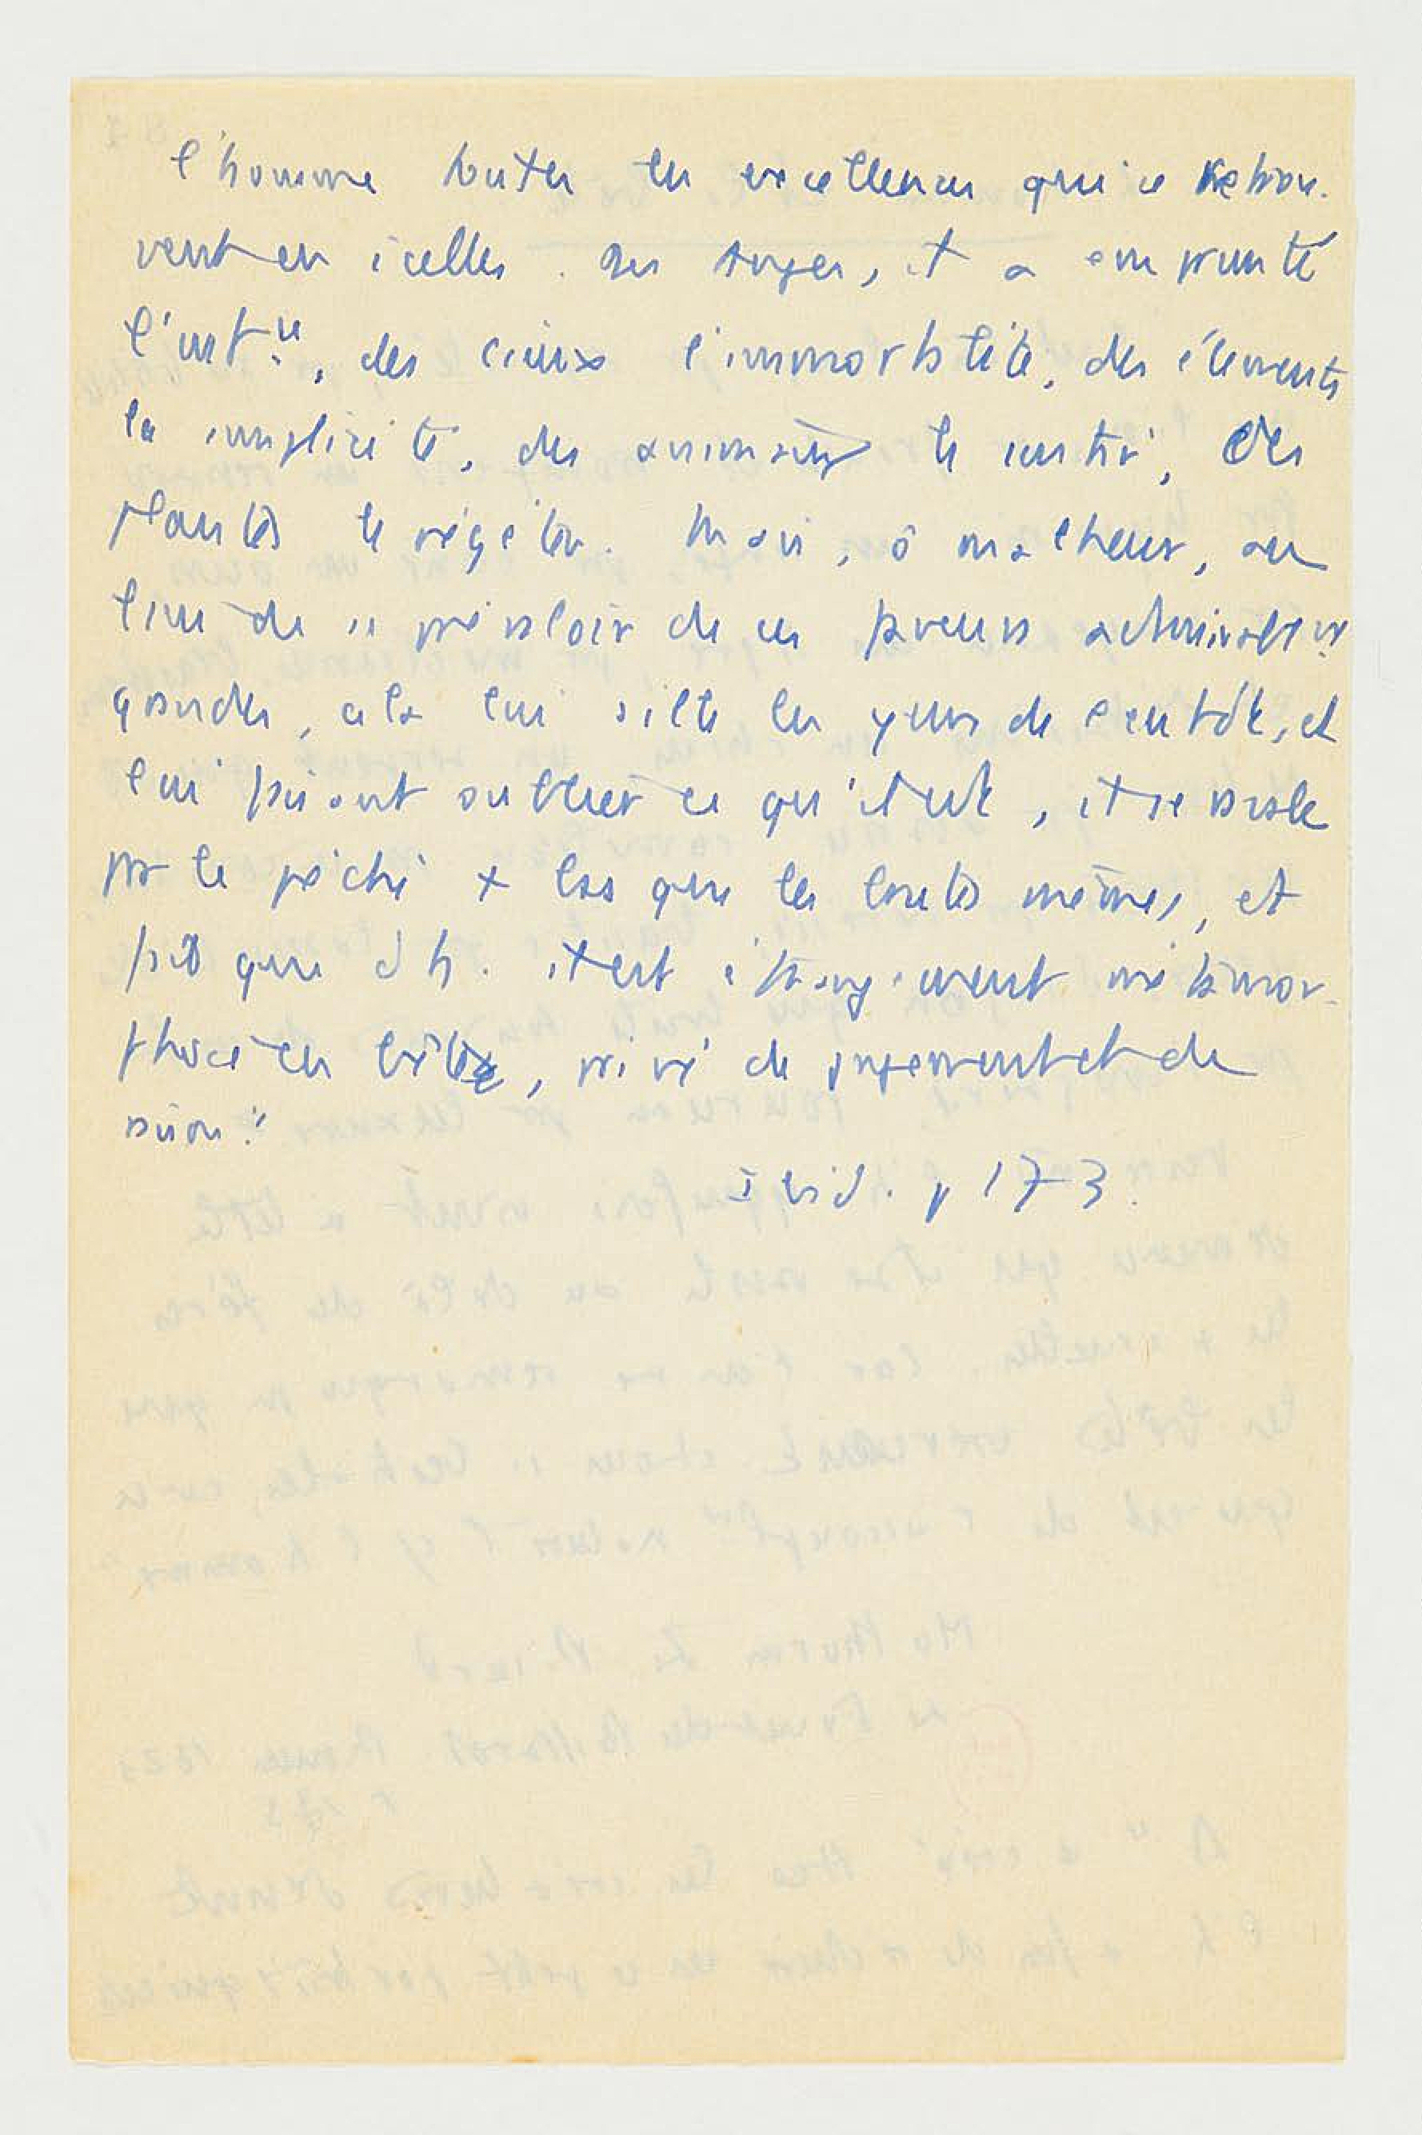 l'homme toutes les excellences qui se retrou-
vent en icelles. Des Anges, il a emprunté
l'int.ce, des cieux l'immortalité, des éléments
la simplicité, des animaux le sentir, des
plantes le végéter. Mais, ô malheur, au
lieu de se prévaloir de ces faveurs
grandes, cela lui sille les yeux de l'entdt, et
lui faisant oublier ce qu'il est, il se ravale
par le péché + bas que les brutes mêmes, et
pis que d'h. il est étrangement métamor-
phosé en bête, privé de jugement et de
raison."
Ibid. p 173.